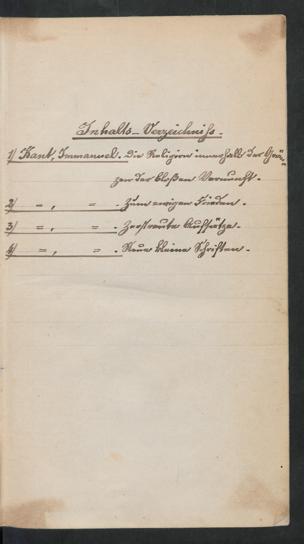 Inhalts-Verzeichniß.
1) Kant, Immanuel. Die Religion innerhalb der Grä=
zen der bloßen Vernunft.
2) " , " . Zum ewigen Frieden.
3) " , " . Zerstreute Aufsätze.
4) " , " . Neue kleine Schriften.